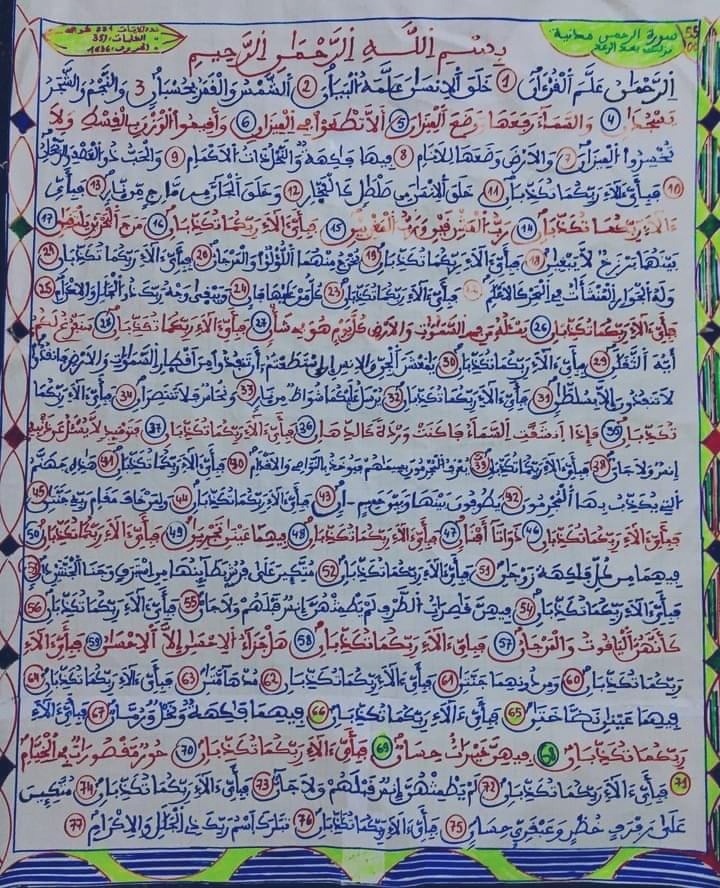 سورة الرحمن مدنية
نزلت بعد الرعد
55
الكلمات 351
الحروف 1636
بسم الله الرحمن الرحيم
الرحمن علم القرءان 1 خلق الانسن علمه البيان 2 الشمس والقمر بحسبان 3 والنجم والشجر
يسجدان 4 والسماء رفعها ووضع الميزان 5 ألا تطغوا في الميزان 6 وأقيموا الوزن بالقسط ولا
تخسروا الميزان 7 والارض وضعها للانام 8 فيها فاكهة والنخل ذات الاكمام 9 والحب ذو العصف والريحان
10 فبأي ءالاء ربكما تكذبان 11 خلق الانسن من صلصل كالفخار 12 وخلق الجان من مارج من نار 13 فبأي
ءالاء ربكما تكذبان 14 رب المشرقين ورب المغربين 15 فبأي ءالاء ربكما تكذبان 16 مرج البحرين يلتقين 17
بينهما برزخ لا يبغين 18 فبأي ءالاء ربكما تكذبان 19 يخرج منهما اللؤلؤ والمرجان 20 فبأي ءالاء ربكما تكذبان 21
وله الجوار المنشأت في البحر كالاعلم فبأي ءالاء ربكما تكذبان 23 كل من عليها فان 24 ويبقى وجه ربك ذو الجلل والاكرام 25
فبأي ءالاء ربكما تكذبان 26 يسئله من في السموت والارض كل يوم هو في شأن 27 فبأي ءالاء ربكما تكذبان 28 سنفرغ لكم
أيه الثقلن 29 فبأي ءالاء ربكما تكذبان 30 يمعشر الجن والانس إن استطعتم أن تنفذوا من أقطار السموت والارض فانفذوا
لا تنفذون إلا بسلطن 31 فبأي ءالاء ربكما تكذبان 32 يرسل عليكما شواظ من نار 33 ونحاس فلا تنتصران 34 فبأي ءالاء ربكما
تكذبان 35 فإذا انشقت السماء فكانت وردة كالدهان 36 فبأي ءالاء ربكما تكذبان 37 فيومئذ لا يسئل عن ذنبه
إنس ولا جان 38 فبأي ءالاء ربكما تكذبان 39 يعرف المجرمون بسيمهم فيوخذ بالنوصي والاقدام 40 فبأي ءالاء ربكما تكذبان 41 هذه جهنم
التي يكذب بها المجرمون 42 يطوفون بينها وبين حميم ان 43 فبأي ءالاء ربكما تكذبان 44 ولمن خاف مقام ربه جنتن 45
فبأي ءالاء ربكما تكذبان 46 ذواتا أفنان 47 فبأي ءالاء ربكما تكذبان 48 فيهما عينن تجرين 49 فبأي ءالاء ربكما تكذبان 50
فيهما من كل فكهة زوجن 51 فبأي ءالاء ربكما تكذبان 52 متكئين على فرش بطائنها من استبرق وجنا الجنتين دان 53
فبأي ءالاء ربكما تكذبان 54 فيهن قصرات الطرف لم يطمثهن إنس قبلهم ولا جان 55 فبأي ءالاء ربكما تكذبان 56
كأنهن الياقوت والمرجان 57 فبأي ءالاء ربكما تكذبان 58 هل جزاء الاحسن إلا الاحسن 59 فبأي ءالاء
ربكما تكذبان 60 ومن دونهما جنتن 61 فبأي ءالاء ربكما تكذبان 62 مدهامتن 63 فبأي ءالاء ربكما تكذبان 64
فيهما عينن نضاختن 65 فبأي ءالاء ربكما تكذبان 66 فيهما فكهة ونخل ورمان 67 فبأي ءالاء
ربكما تكذبان 68 فيهن خيرات حسان 69 فبأي ءالاء ربكما تكذبان 70 حور مقصورات في الخيام
71 فبأي ءالاء ربكما تكذبان 72 لم يطمثهن إنس قبلهم ولا جان 73 فبأي ءالاء ربكما تكذبان 74 متكئين
على رفرف خضر وعبقري حسان 75 فبأي ءالاء ربكما تكذبان 76 تبرك اسم ربك ذي الجلل والاكرام 77